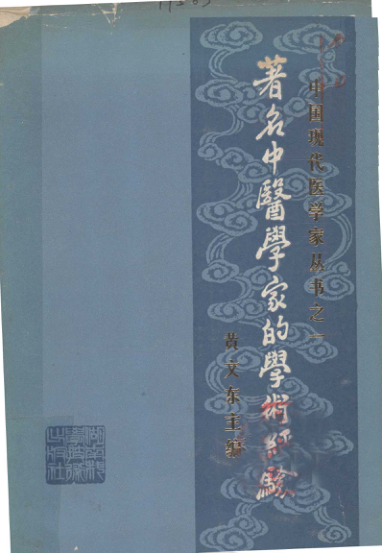 中国现代医学家丛书之一
著名中醫學家的學術經驗
黄文东主编
湖南科
學技術
出版社